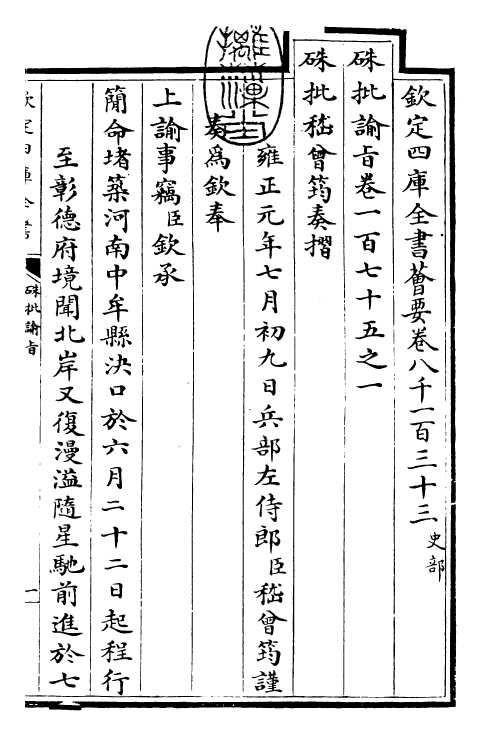 欽定四庫全書薈要卷八千一百三十三 史部
硃批諭旨卷一百七十五之一
硃批嵇曾筠奏摺
雍正元年七月初九日兵部左侍郎臣嵇曾筠謹
奏爲欽奉
上諭事竊臣欽承
簡命堵築河南中牟縣決口於六月二十二日起程行
至彰德府境聞北岸又復漫溢隨星馳前進於七
欽定四庫全書
硃批諭旨
一